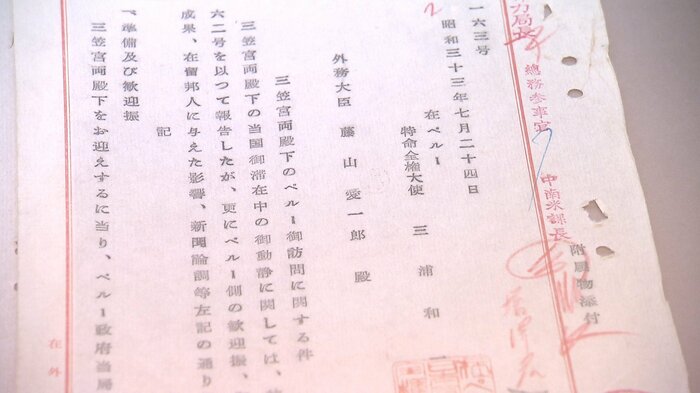 附属物添付
中南米課長
總務参事官
力局長
一六三号
昭和三十三年七月二十四日
在ペルー
特命全権大使 三浦和
外務大臣 藤山愛一郎殿
三笠宮両殿下のペルー御訪問に関する件
三笠宮両殿下の当国御滞在中の御動静に関しては、
六二号を以つて報告したが、更にペルー側の歓迎振、
成果、在留邦人に与えた影響、新聞論調等左記の通り
記
一、準備及び歓迎振
三笠宮両殿下をお迎えするに当り、ペルー政府当局
在外